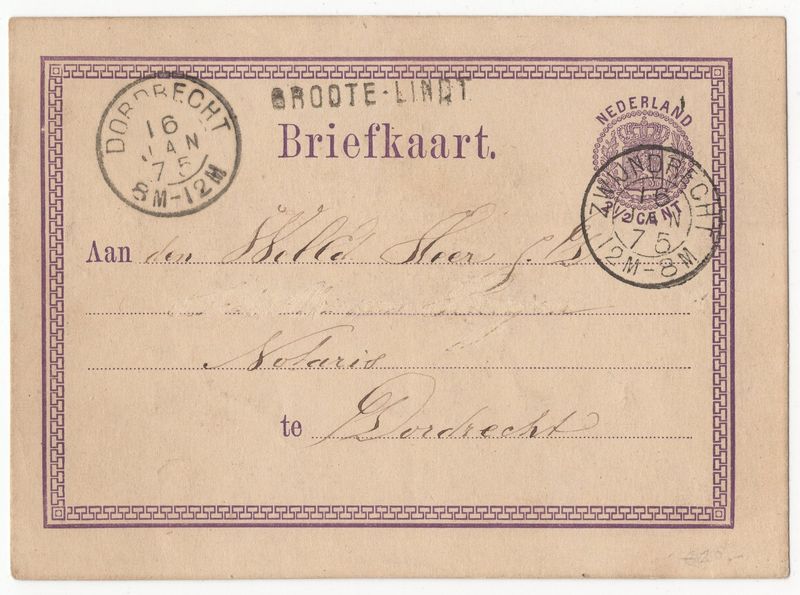 DORDRECHT
16
JAN
75
8M-12M
GROOTE-LINDT
Briefkaart.
NEDERLAND
2½ CENT
ZWIJNDRECHT
16
JAN
75
12M-8M
Aan den Heer
Notaris
te Dordrecht